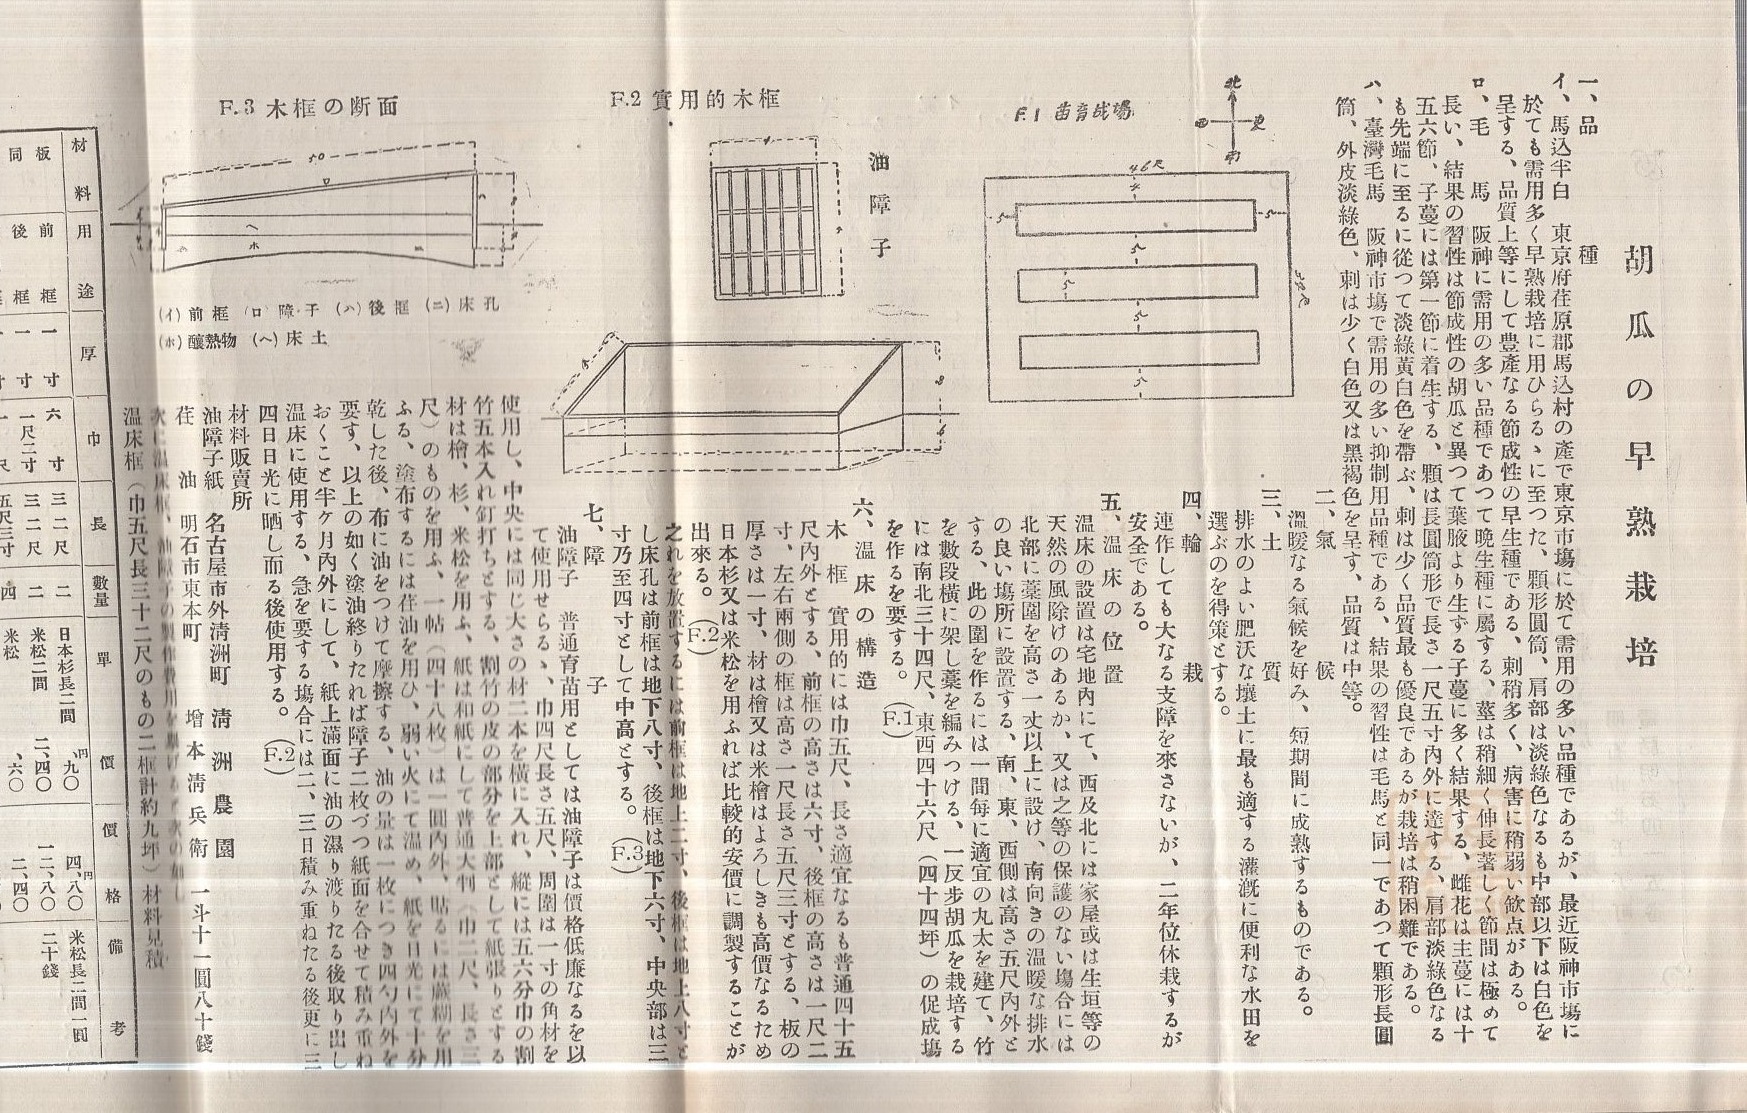 胡瓜の早熟栽培
一、品種
イ、馬込半白　東京府荏原郡馬込村の產で東京市塲に於て需用の多い品種であるが、最近阪神市塲に
於ても需用多く早熟栽培に用ひらるゝに至つた、顆形圓筒、肩部は淡綠色なるも中部以下は白色を
呈する、品質上等にして豊產なる節成性の早生種である、刺稍多く、病害に稍弱い欠点がある。
ロ、毛馬　阪神に需用の多い品種であつて晩生種に屬する、莖は稍細く伸長著しく節間は極めて
長い、結果の習性は節成性の胡瓜と異つて葉腋より生ずる子蔓に多く結果する、雌花は主蔓には十
五六節、子蔓には第一節に着生する、顆は長圓筒形で長さ一尺五寸內外に達する、肩部淡綠色なる
も先端に至るに從つて淡綠黃白色を帶ぶ、刺は少く品質最も優良であるが栽培は稍困難である。
ハ、臺灣毛馬　阪神市塲で需用の多い抑制用品種である、結果の習性は毛馬と同一であつて顆形長圓
筒、外皮淡綠色、刺は少く白色又は黑褐色を呈す、品質は中等。
二、氣候
溫暖なる氣候を好み、短期間に成熟するものである。
三、土質
排水のよい肥沃な壤土に最も適する灌漑に便利な水田を
選ぶのを得策とする。
四、輪栽
連作しても大なる支障を來さないが、二年位休栽するが
安全である。
五、溫床の位置
溫床の設置は宅地內にて、西及北には家屋或は生垣等の
天然の風除けのあるか、又は之等の保護のない塲合には
北部に藁圍を高さ一丈以上に設け、南向きの溫暖な排水
の良い塲所に設置する、南、東、西側は高さ五尺內外と
する、此の圍を作るには一間每に適宜の丸太を建て、竹
を數段橫に架し藁を編みつける、一反步胡瓜を栽培する
には南北三十四尺、東西四十六尺（四十四坪）の促成塲
を作るを要する。(F.1)
六、溫床の構造
木框　實用的には巾五尺、長さ適宜なるも普通四十五
尺內外とする、前框の高さは六寸、後框の高さは一尺二
寸、左右兩側の框は高さ一尺長さ五尺三寸とする、板の
厚さは一寸、材は檜又は米檜はよろしきも高價なるため
日本杉又は米松を用ふれば比較的安價に調製することが
出來る。(F.2)
之れを放置するには前框は地上二寸、後框は地上八寸と
し床孔は前框は地下八寸、後框は地下六寸、中央部は三
寸乃至四寸として中高とする。(F.3)
七、障子
油障子　普通育苗用としては油障子は價格低廉なるを以
て使用せらるゝ、巾四尺長さ五尺、周圍は一寸の角材を
使用し、中央には同じ大さの材二本を橫に入れ、縱には五六分巾の割
竹五本入れ釘打ちとする、割竹の皮の部分を上部として紙張りとする
材は檜、杉、米松を用ふ、紙は和紙にして普通大判（巾二尺、長さ三
尺）のものを用ふ、一帖（四十八枚）は一圓內外、貼るには蕨糊を用
ふる、塗布するには荏油を用ひ、弱い火にて溫め、紙を日光にて十分
乾した後、布に油をつけて摩擦する、油の量は一枚につき四勺內外を
要す、以上の如く塗油終りたれば障子二枚づつ紙面を合せて積み重ね
おくこと半ヶ月內外にして、紙上滿面に油の濕り渡りたる後取り出し
溫床に使用する、急を要する塲合には二、三日積み重ねたる後更に三
四日日光に晒し而る後使用する。(F.2)
材料販賣所
油障子紙　名古屋市外清洲町　清洲農園
荏油　明石市東本町　增本淸兵衛　一斗十一圓八十錢
次に溫床框、油障子の製作費用を
溫床框（巾五尺長三十二尺のもの二框計約九坪）材料見積
北
東
南
西
F.1 苗育成塲
46R
油障子
F.2 實用的木框
F.3 木框の断面
50
(イ)前框 (ロ)障子 (ハ)後框 (ニ)床孔
(ホ)釀熱物 (ヘ)床土
材料　用途　厚　巾　長　數量　單價　價格　備考
板　前框　一寸　六寸　三二尺　二　日本杉長二間　圓、九〇　四、八〇圓　米松長二間一圓
同　後框　一寸　一尺二寸　三二尺　二　米松二間　二、四〇　一二、八〇　二十錢
五尺三寸　四　米松　、六〇　二、四〇